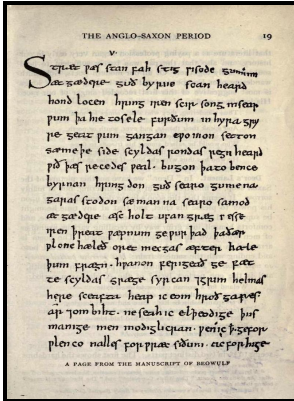 THE ANGLO-SAXON PERIOD 19
V.
Stræt wæs stan fah stig wisode gumum
æt gædere guð byrne scan heard
hond locen hring iren scir song in sear
wum þa hie to sele furðum in hyra gry
re geat wum gangan cwomon setton
sæ meþe side scyldas rondas regn heard
wið þæs recedes weal bugon þa to bence
byrnan hring don guð searo gumena
garas stodon sæ manna searo samod
æt gædere æsc holt ufan græg
iren þreat wæpnum ge wurþad þa ðær
wlonc hæleð oret mecgas æfter hæle
þum frægn hwanon ferigeað ge fæt
te scyldas græge syrcan grim helmas
here sceafta heap ic eom hroð gares
ar om biht ne seah ic elþeodige þus
manige men modiglicran wen ic þ ge for
wlenco nalles for wræc siðum ac for hige
A PAGE FROM THE MANUSCRIPT OF BEOWULF